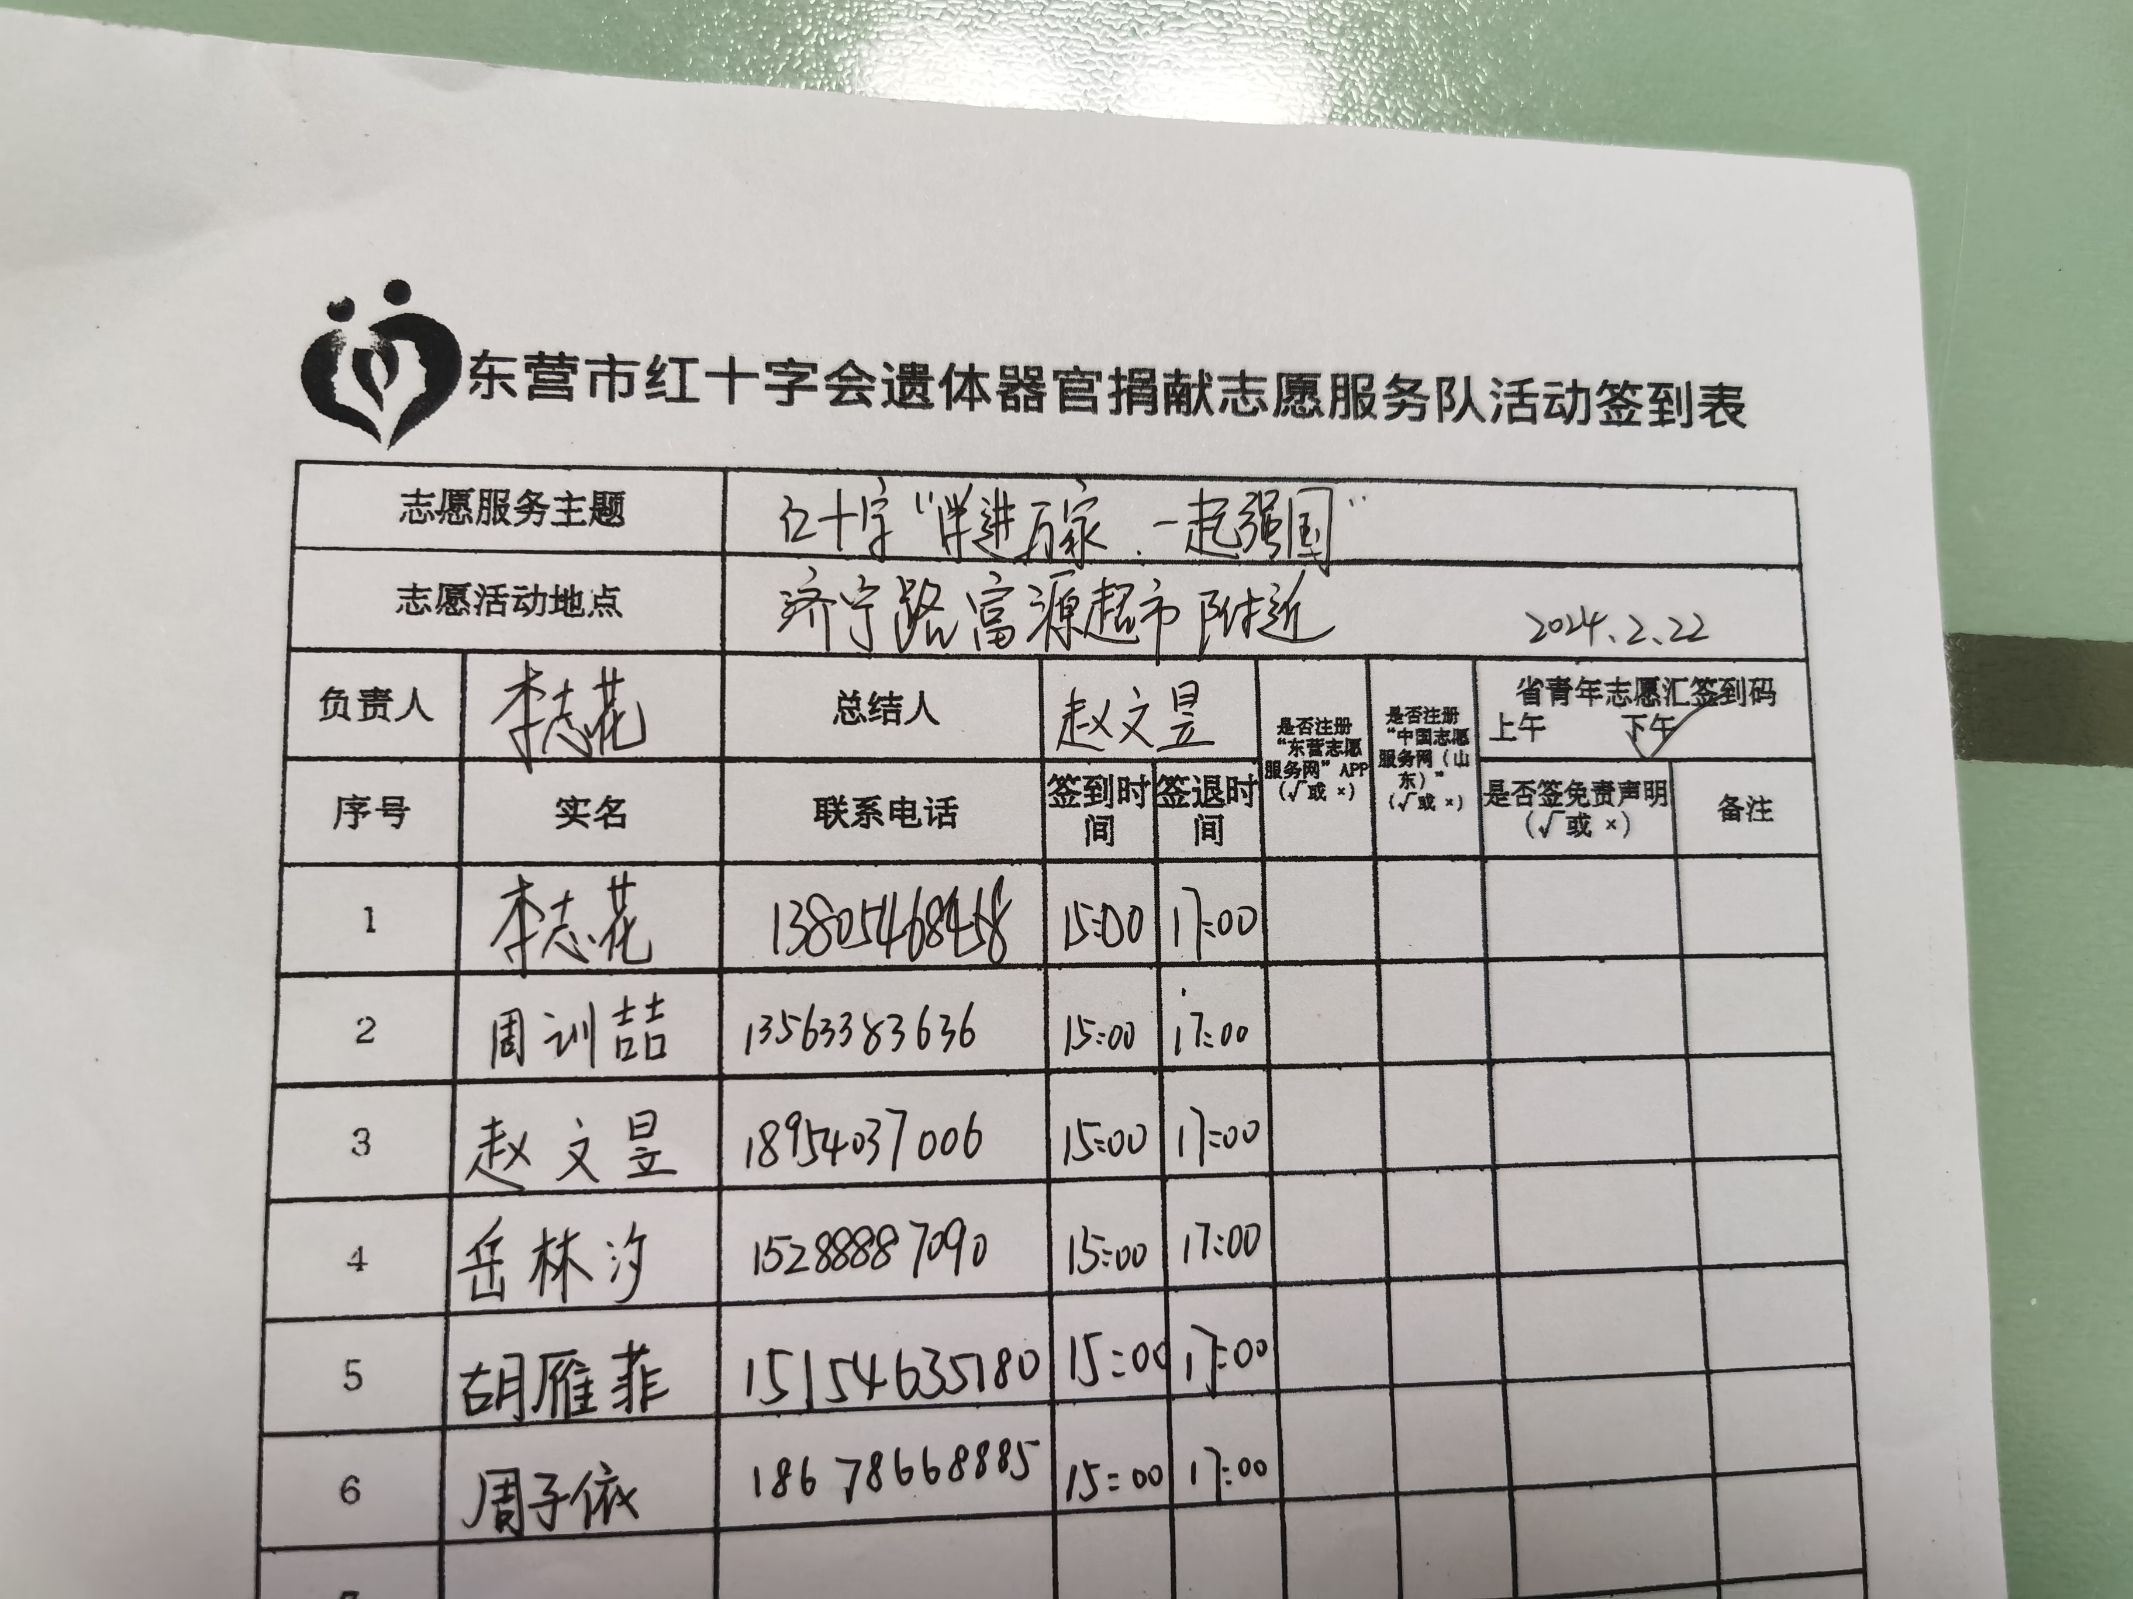 东营市红十字会遗体器官捐献志愿服务队活动签到表
志愿服务主题 红十字“ 进万家.一起强国”
志愿活动地点 济宁路富源超市附近 2024.2.22
负责人 李志花 总结人 赵文昱 是否注册“东营志愿服务网”APP（√或 ×） 是否注册“中国志愿服务网（山东）”（√或 ×） 省青年志愿汇签到码 上午 下午√
序号 实名 联系电话 签到时间 签退时间 是否签免责声明（√或 ×） 备注
1 李志花 13805468458 15:00 17:00
2 周训喆 13563383636 15:00 17:00
3 赵文昱 18954037006 15:00 17:00
4 岳林汐 15288887090 15:00 17:00
5 胡雁菲 15154635180 15:00 17:00
6 周子依 18678668885 15:00 17:00